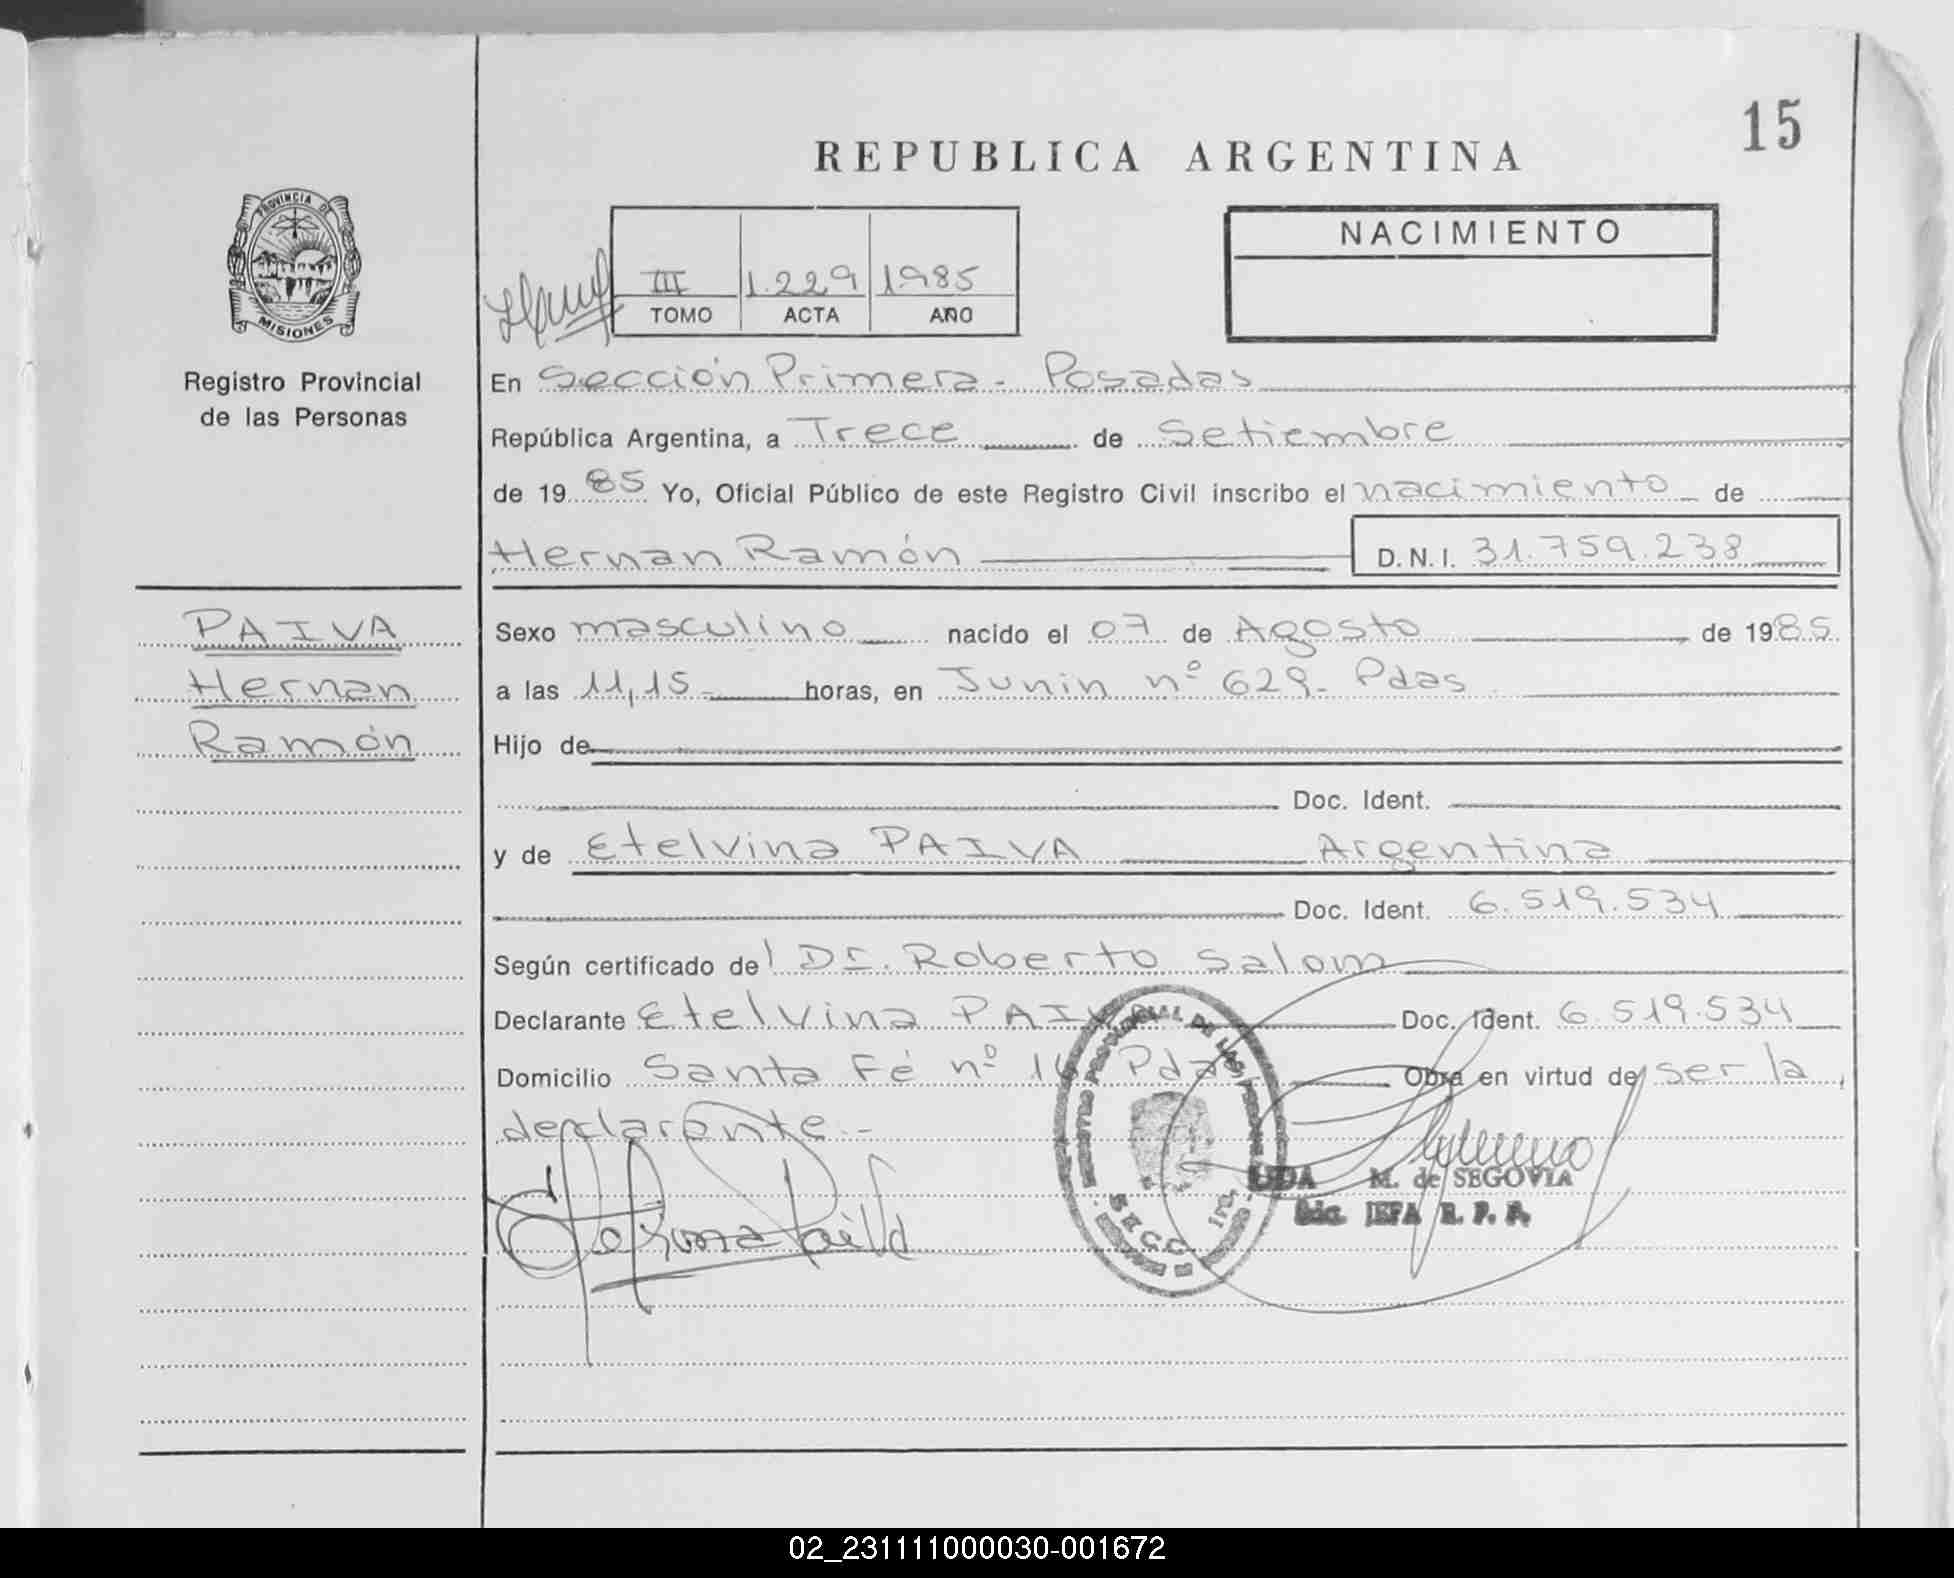 15
REPUBLICA ARGENTINA
PROVINCIA DE
MISIONES
Registro Provincial
de las Personas
NACIMIENTO
III 1.229 1985
TOMO ACTA AÑO
En Sección Primera - Posadas
República Argentina, a Trece de Setiembre
de 19 85 Yo, Oficial Público de este Registro Civil inscribo el nacimiento de
Hernan Ramón D.N.I. 31.759.238
PAIVA
Hernan
Ramón
Sexo masculino nacido el 07 de Agosto de 1985
a las 11,15 horas, en Junin nº 629- Pdas
Hijo de
Doc. Ident.
y de Etelvina PAIVA Argentina
Doc. Ident. 6.519.534
Según certificado del Dr. Roberto Salom
Declarante Etelvina PAIVA Doc. Ident. 6.519.534
Domicilio Santa Fé nº Pdas Obra en virtud de ser la
declarante.-
REGISTRO PROVINCIAL DE LAS
SECC. 1ra.
M. de SEGOVIA
JEFA R. P. P.
02_231111000030-001672